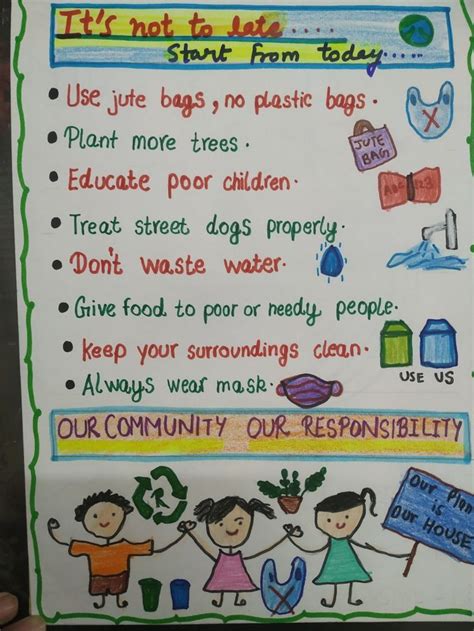 It's not to late.....
Start from today.....
• Use jute bags, no plastic bags.
JUTE BAG
• Plant more trees.
• Educate poor children.
ABC 123
• Treat street dogs properly.
• Don't waste water.
• Give food to poor or needy people.
• Keep your surroundings clean.
USE US
• Always wear mask.
OUR COMMUNITY OUR RESPONSIBILITY
R
Our Plan
is
Our HOUSE